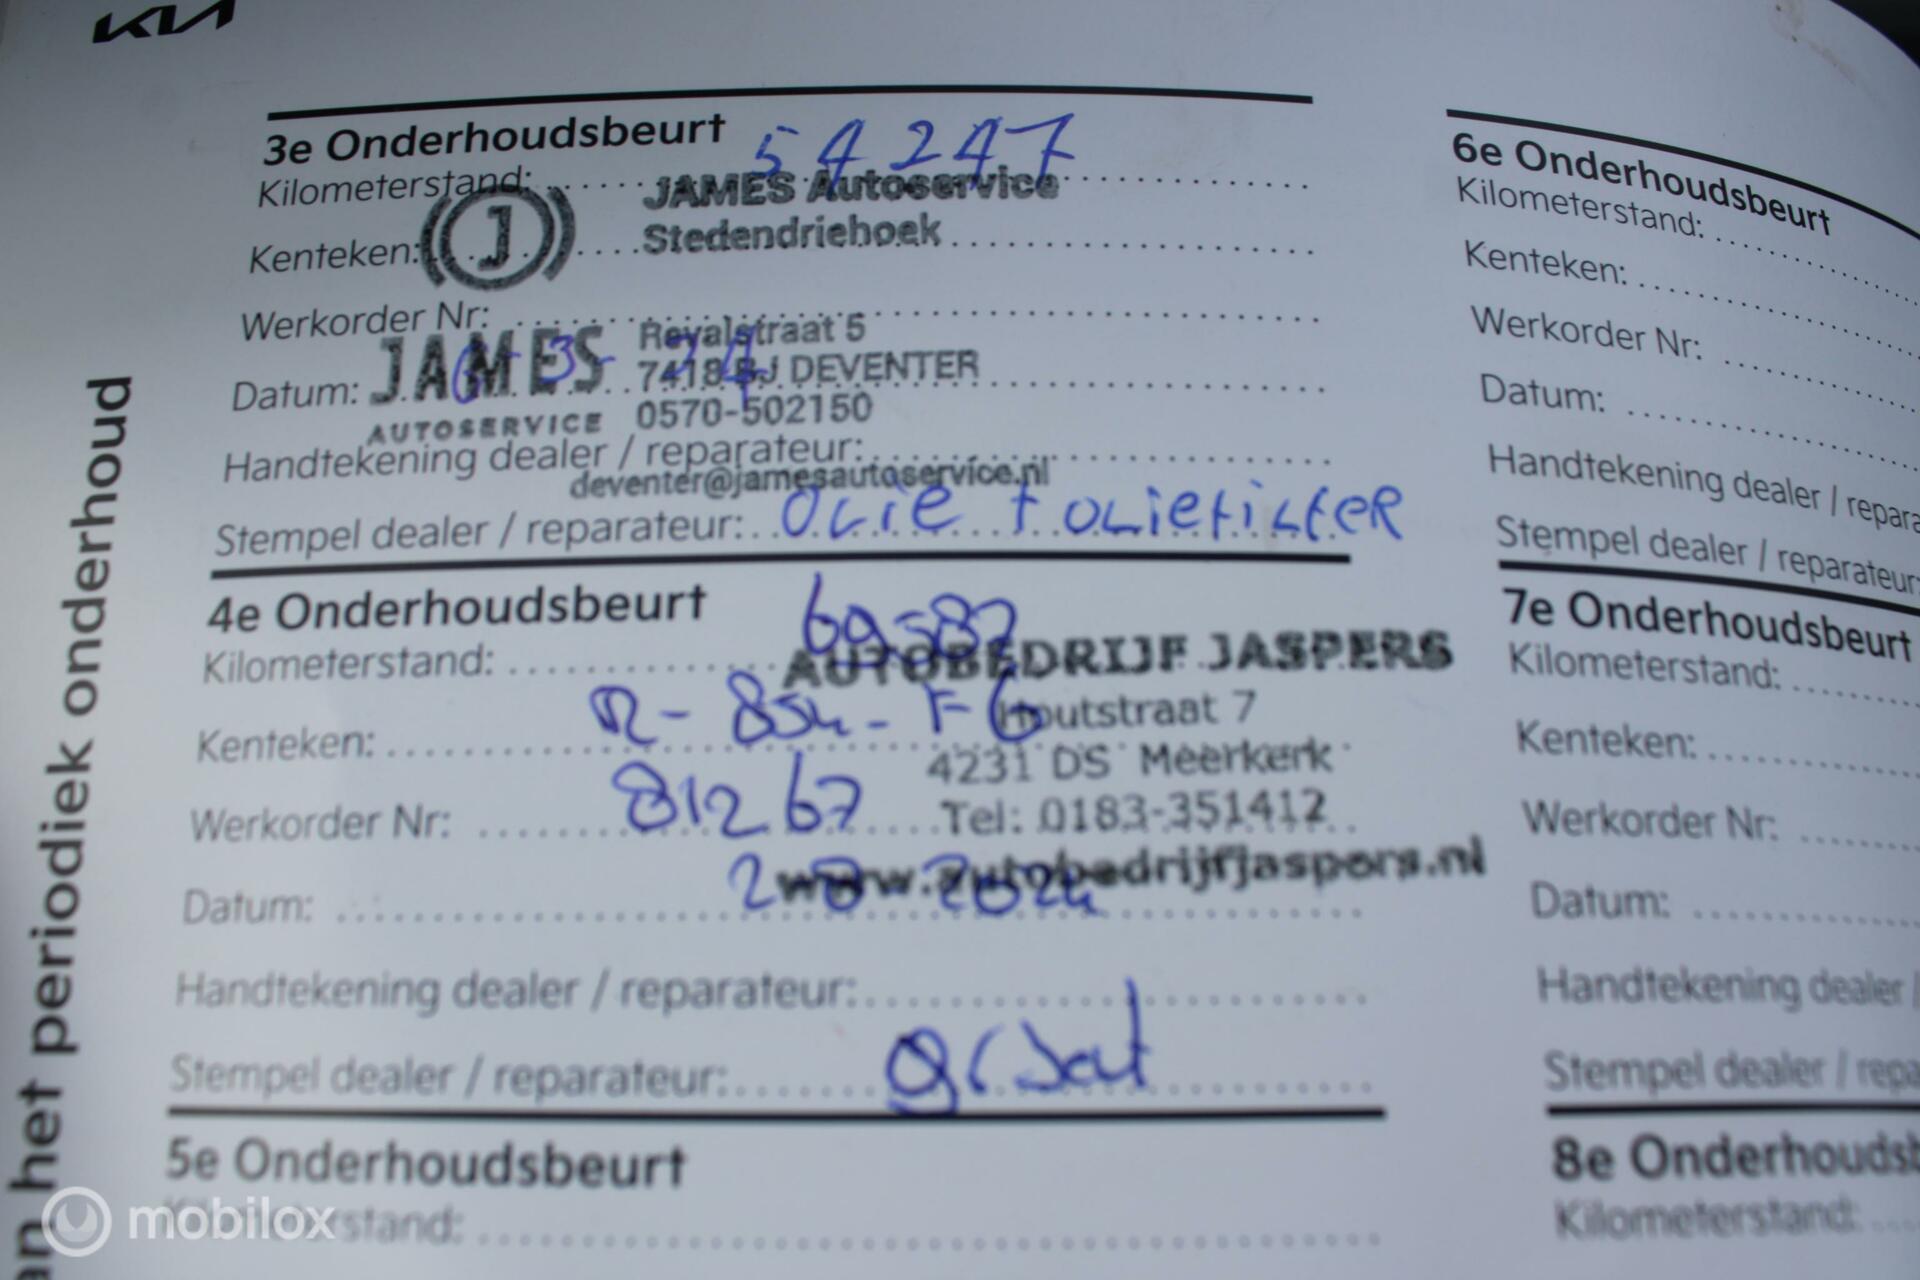 KIA
an het periodiek onderhoud
3e Onderhoudsbeurt
Kilometerstand: 54247
Kenteken:
Werkorder Nr:
Datum: 6-3-24
Handtekening dealer / reparateur:
Stempel dealer / reparateur: OLIE + OLIEFILTER
J
JAMES
AUTOSERVICE
JAMES Autoservice
Stedendriehoek
Revalstraat 5
7418 BJ DEVENTER
0570-502150
deventer@jamesautoservice.nl
4e Onderhoudsbeurt
Kilometerstand: 69582
Kenteken: R-854-FG
Werkorder Nr: 81267
Datum: 2024
Handtekening dealer / reparateur:
Stempel dealer / reparateur:
AUTOBEDRIJF JASPERS
Houtstraat 7
4231 DS Meerkerk
Tel: 0183-351412
www.autobedrijfjaspers.nl
5e Onderhoudsbeurt
Kilometerstand:
6e Onderhoudsbeurt
Kilometerstand:
Kenteken:
Werkorder Nr:
Datum:
Handtekening dealer / repara
Stempel dealer / reparateur:
7e Onderhoudsbeurt
Kilometerstand:
Kenteken:
Werkorder Nr:
Datum:
Handtekening dealer /
Stempel dealer / repa
8e Onderhoudsb
Kilometerstand:
mobilox